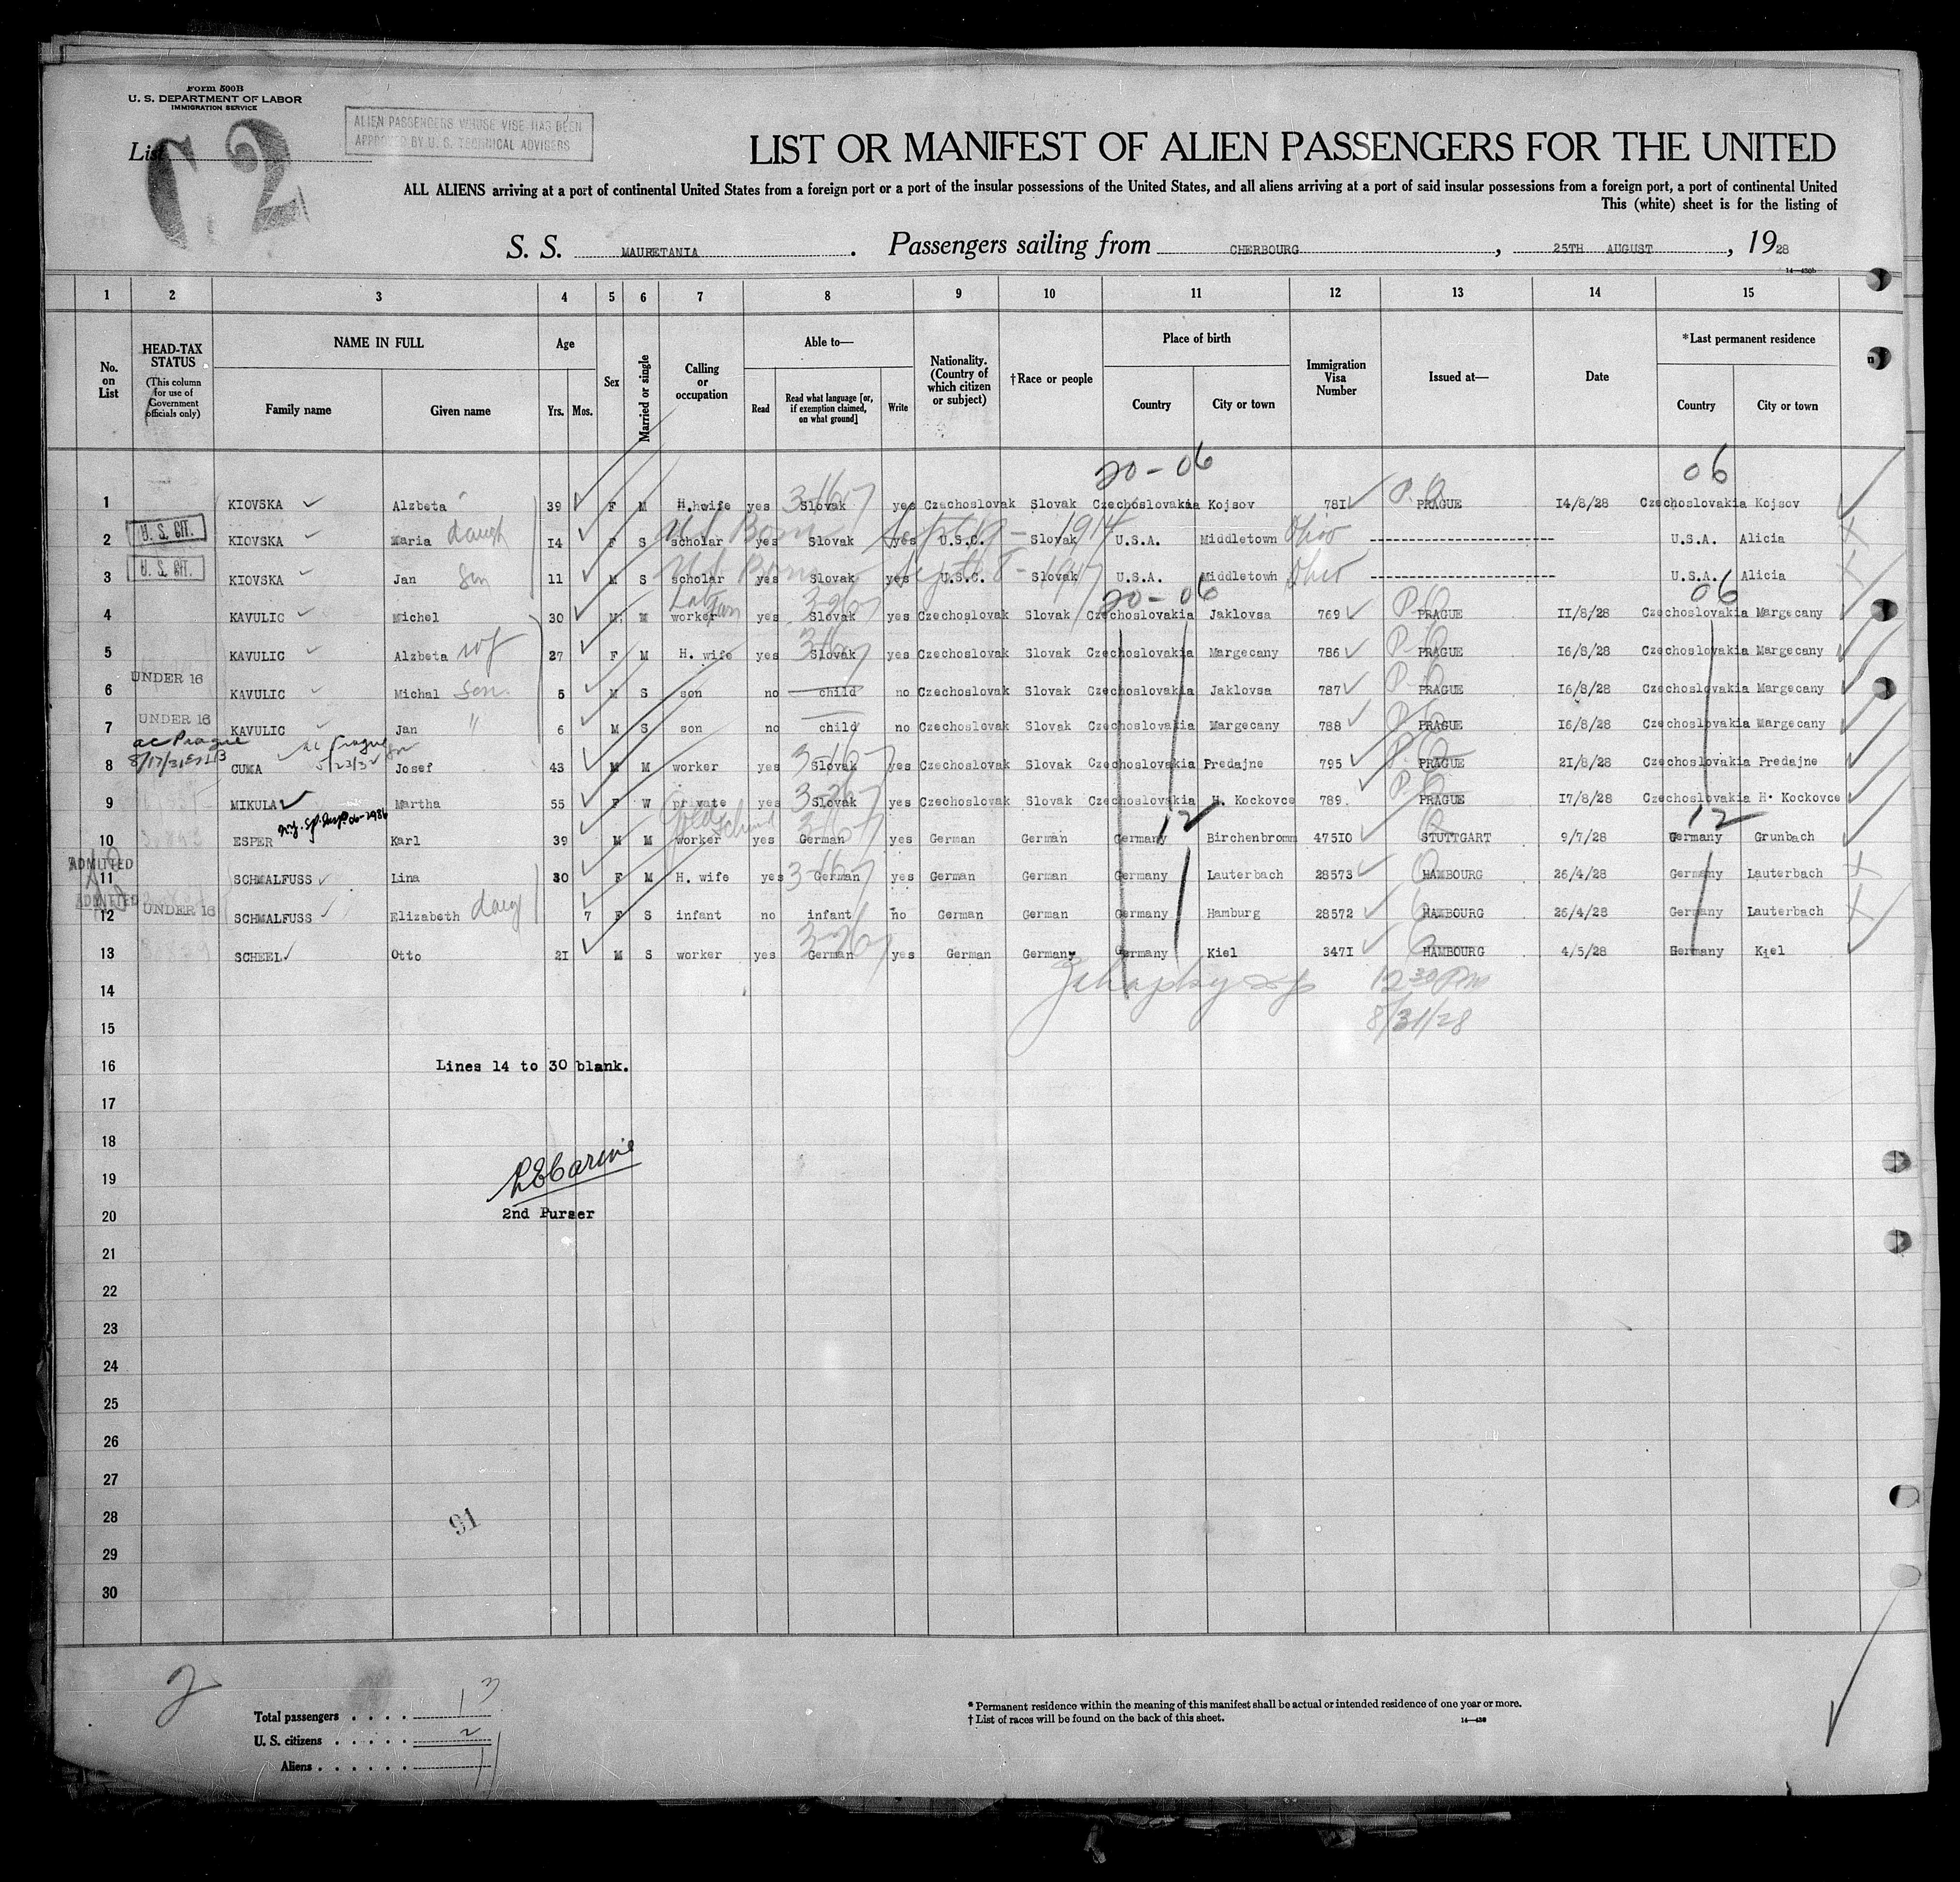 Form 500B
U. S. DEPARTMENT OF LABOR
IMMIGRATION SERVICE
List
2
ALIEN PASSENGERS WHOSE VISE HAS BEEN
APPROVED BY U. S. TECHNICAL ADVISERS
LIST OR MANIFEST OF ALIEN PASSENGERS FOR THE UNITED
ALL ALIENS arriving at a port of continental United States from a foreign port or a port of the insular possessions of the United States, and all aliens arriving at a port of said insular possessions from a foreign port, a port of continental United
This (white) sheet is for the listing of
S. S. MAURETANIA. Passengers sailing from CHERBOURG, 25TH AUGUST, 1928
14—430b
1 2 3 4 5 6 7 8 9 10 11 12 13 14 15
No. on List
HEAD-TAX STATUS (This column for use of Government officials only)
NAME IN FULL
Family name Given name
Age
Yrs. Mos.
Sex
Married or single
Calling or occupation
Able to—
Read Read what language [or, if exemption claimed, on what ground] Write
Nationality. (Country of which citizen or subject)
†Race or people
Place of birth
Country City or town
Immigration Visa Number
Issued at—
Date
*Last permanent residence
Country City or town
20-06 06
1 KIOVSKA Alzbeta 39 F M H.wife yes Slovak yes Czechoslovak Slovak Czechoslovakia Kojsov 781 PRAGUE 14/8/28 Czechoslovakia Kojsov
2 U. S. CIT. KIOVSKA Maria daugh 14 F S scholar yes Slovak yes U.S.C. Slovak U.S.A. Middletown Ohio U.S.A. Alicia
US Born Sept 19-1914
3 U. S. CIT. KIOVSKA Jan Son 11 M S scholar yes Slovak yes U.S.C. Slovak U.S.A. Middletown Ohio U.S.A. Alicia
US Born Sept 8-1917
20-06 06
4 KAVULIC Michel 30 M M worker yes Slovak yes Czechoslovak Slovak Czechoslovakia Jaklovsa 769 PRAGUE 11/8/28 Czechoslovakia Margecany
5 KAVULIC Alzbeta wf 27 F M H. wife yes Slovak yes Czechoslovak Slovak Czechoslovakia Margecany 786 PRAGUE 16/8/28 Czechoslovakia Margecany
6 UNDER 16 KAVULIC Michal Son 5 M S son no child no Czechoslovak Slovak Czechoslovakia Jaklovsa 787 PRAGUE 16/8/28 Czechoslovakia Margecany
7 UNDER 16 KAVULIC Jan " 6 M S son no child no Czechoslovak Slovak Czechoslovakia Margecany 788 PRAGUE 16/8/28 Czechoslovakia Margecany
ac Prague
8 CUMA Josef 43 M M worker yes Slovak yes Czechoslovak Slovak Czechoslovakia Predajne 795 PRAGUE 21/8/28 Czechoslovakia Predajne
9 MIKULA Martha 55 F W private yes Slovak yes Czechoslovak Slovak Czechoslovakia H. Kockovce 789 PRAGUE 17/8/28 Czechoslovakia H. Kockovce
12 12
10 ESPER Karl 39 M M worker yes German yes German German Germany Birchenbromm 47510 STUTTGART 9/7/28 Germany Grunbach
ADMITTED
11 SCHMALFUSS Lina 30 F M H. wife yes German yes German German Germany Lauterbach 28573 HAMBOURG 26/4/28 Germany Lauterbach
ADMITTED
12 UNDER 16 SCHMALFUSS Elizabeth daug 7 F S infant no infant no German German Germany Hamburg 28572 HAMBOURG 26/4/28 Germany Lauterbach
13 SCHEEL Otto 21 M S worker yes German yes German Germany Germany Kiel 3471 HAMBOURG 4/5/28 Germany Kiel
14 12 30 PM
15 8/31/28
16 Lines 14 to 30 blank.
17
18
19
20 2nd Purser
21
22
23
24
25
26
27
28 91
29
30
2
Total passengers . . . . 13
U. S. citizens . . . . . 2
Aliens . . . . . . 11
* Permanent residence within the meaning of this manifest shall be actual or intended residence of one year or more.
† List of races will be found on the back of this sheet.
14—430